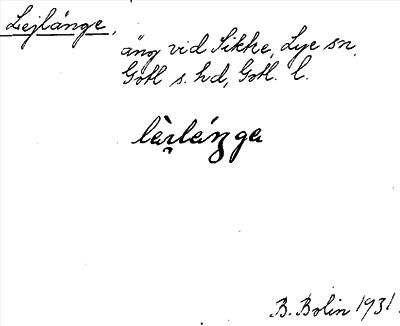 Lejlänge,
äng vid Sikke, Lye sn,
Gotl s. hd, Gotl. l.
B. Bolin 1931.